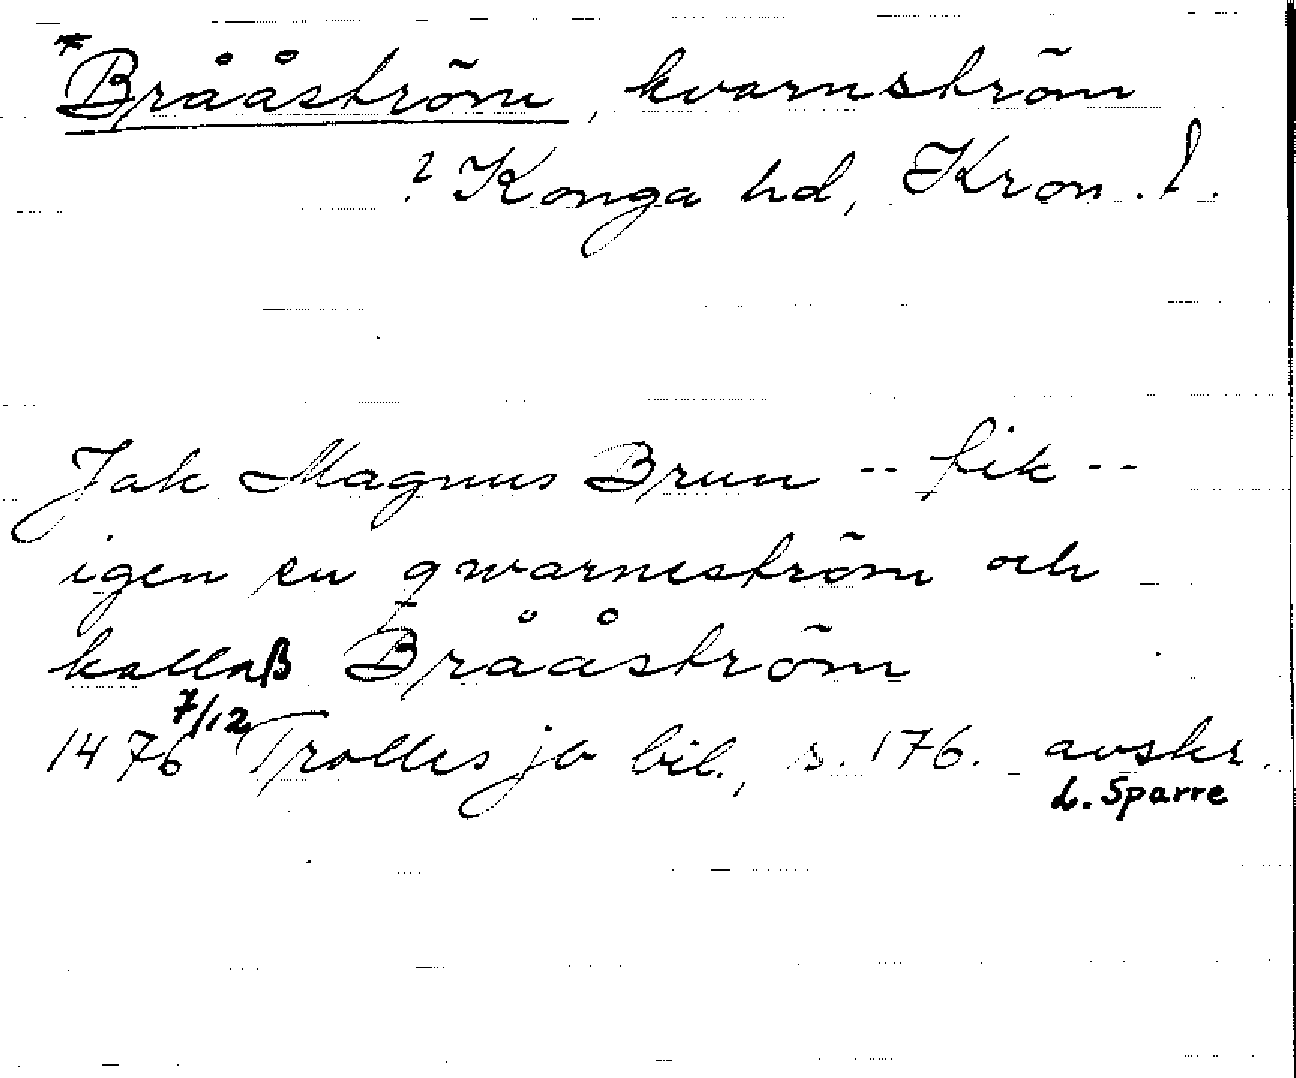 *Brååström, kvarnström
? Konga hd, Kron. l.
Jak Magnus Brun -- fik --
igen en qwarneström och
kallaß Brååström
1476 7/12 Trolles jb bil., s. 176. avskr.
L. Sparre